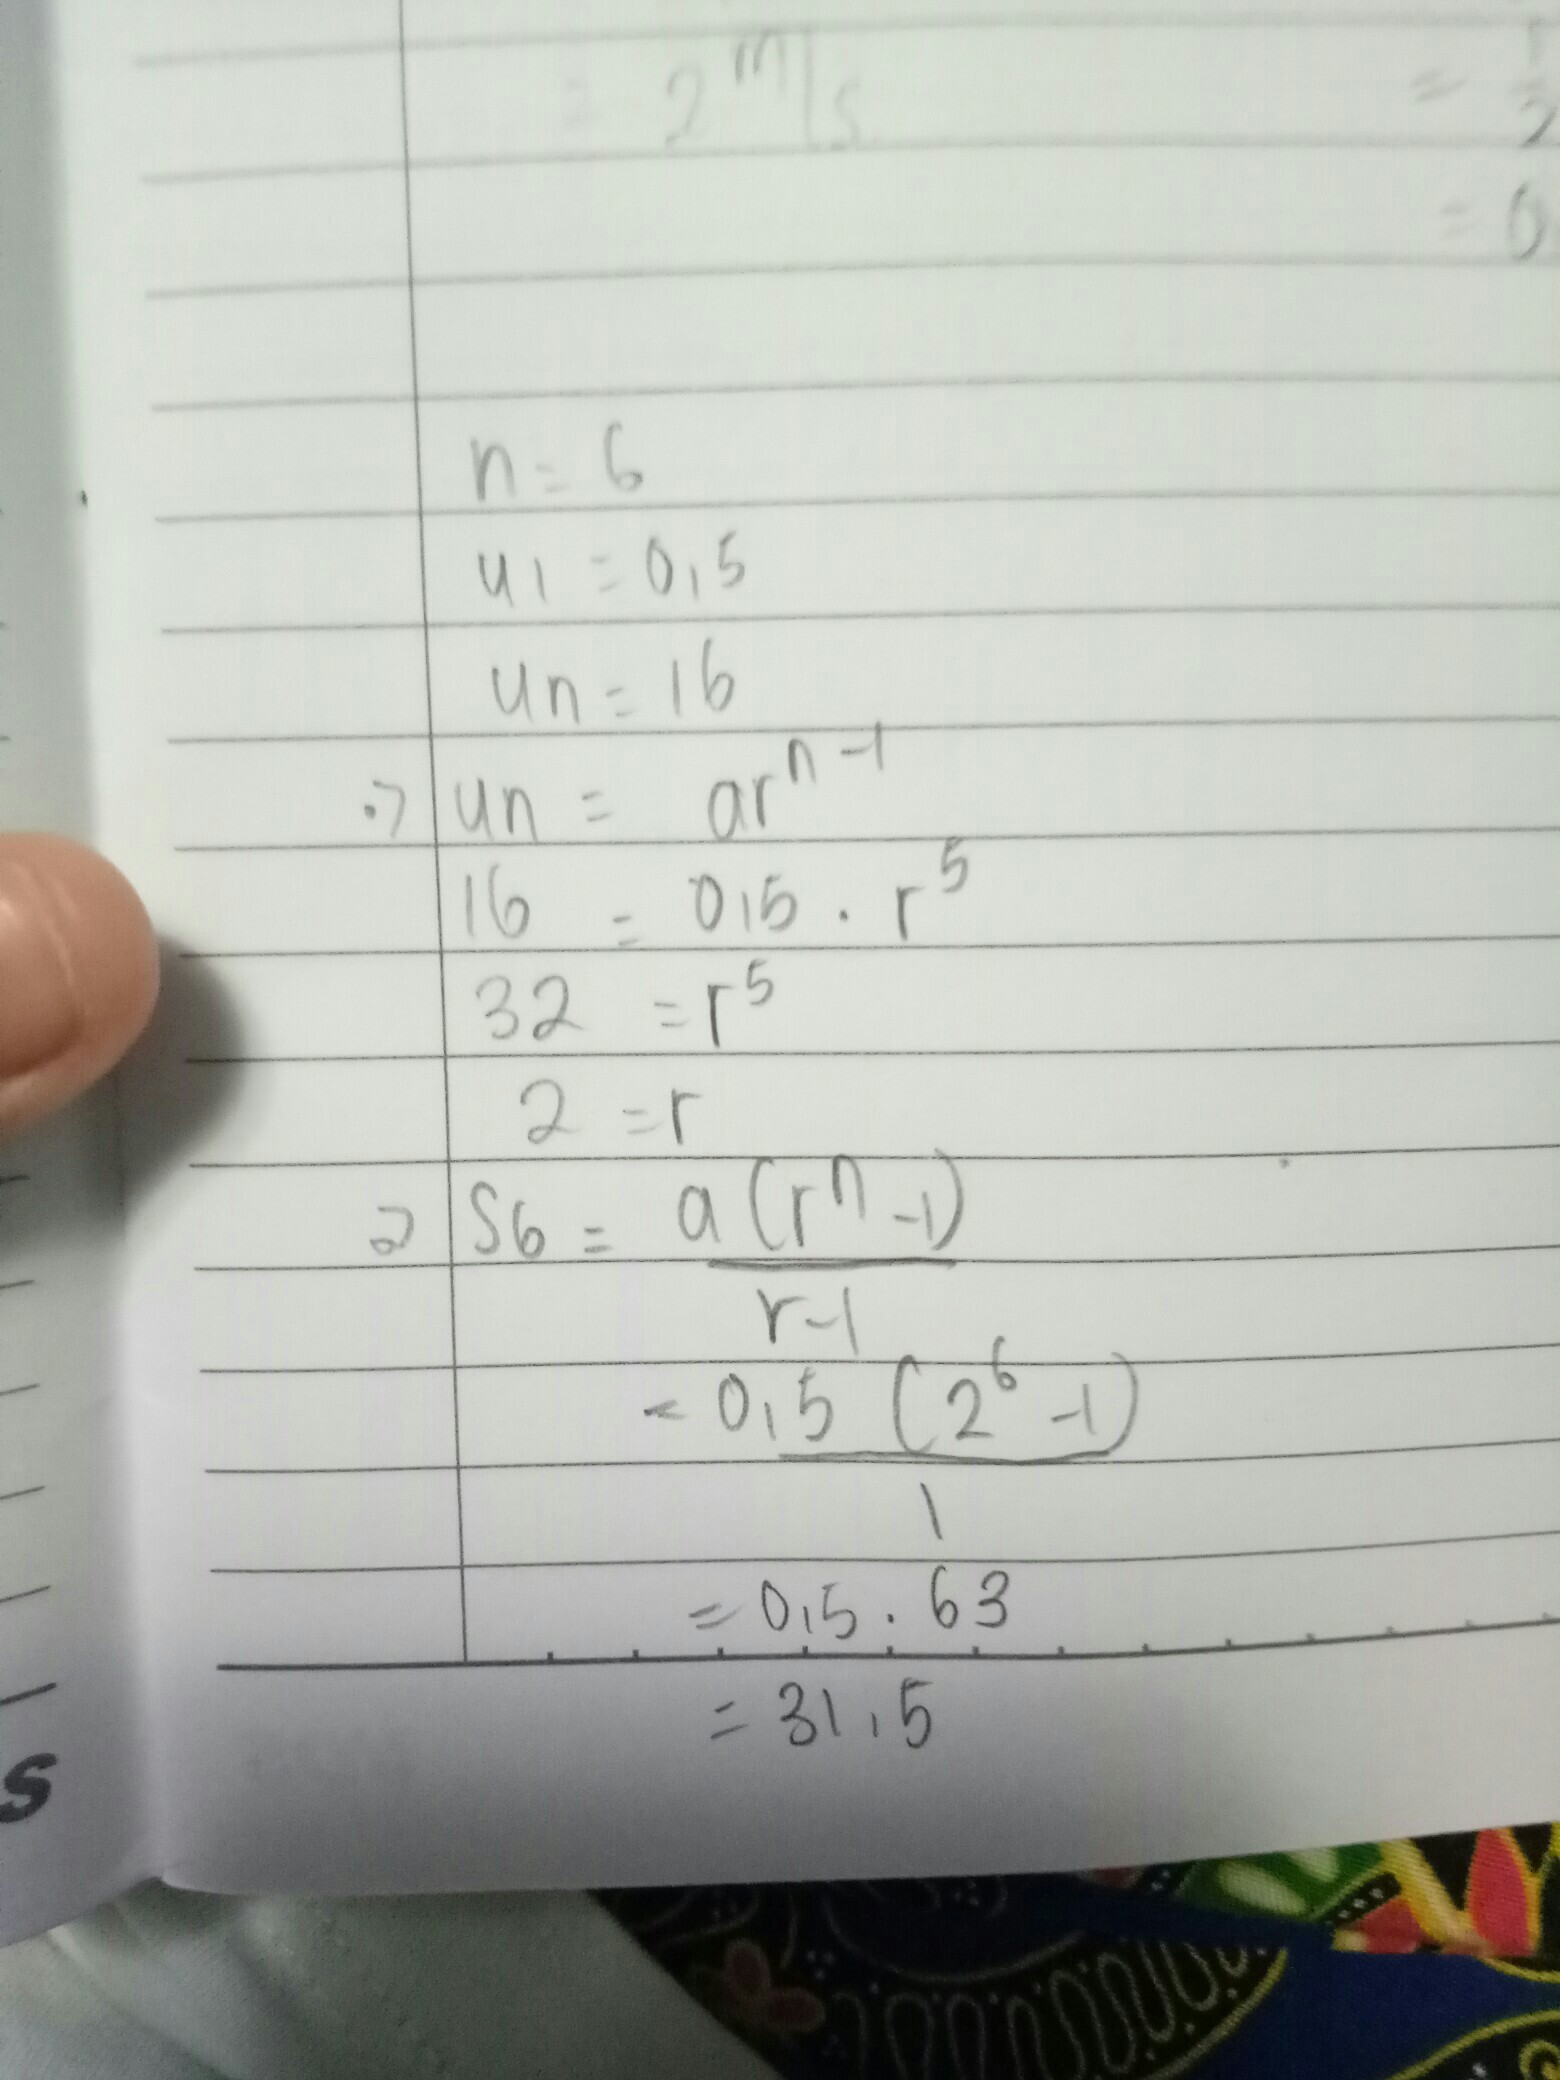 = 2 m/s
= 1/2
= 0
n = 6
u1 = 0,5
un = 16
•> un = ar^n-1
16 = 0,5 . r^5
32 = r^5
2 = r
=> S6 = a (r^n - 1)
r-1
= 0,5 (2^6 - 1)
1
= 0,5 . 63
= 31,5
s